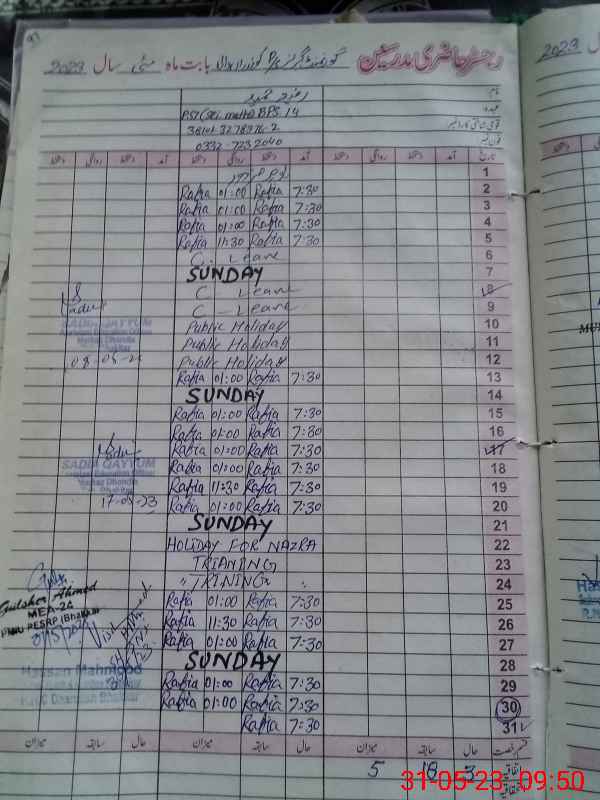 رجسٹر حاضری مدرسین گورنمنٹ گرلز بابت ماہ مئی سال 2023
نام
عہدہ PST (Sci. math) BPS. 14
قومی شناختی کارڈ نمبر
فون نمبر 0332-7232040
تاریخ آمد دستخط روانگی دستخط آمد دستخط روانگی دستخط آمد دستخط روانگی دستخط
1
2 7:30 Rafia 01:00 Rafia
3 7:30 Rafia 01:00 Rafia
4 7:30 Rafia 01:00 Rafia
5 7:30 Rafia 11:30 Rafia
6 C. Leave
7 SUNDAY
8 C - Leave
9 C - Leave
10 Public Holiday
11 Public Holiday
12 Public Holiday
13 7:30 Rafia 01:00 Rafia
14 SUNDAY
15 7:30 Rafia 01:00 Rafia
16 7:30 Rafia 01:00 Rafia
17 7:30 Rafia 01:00 Rafia
18 7:30 Rafia 01:00 Rafia
19 7:30 Rafia 11:30 Rafia
20 7:30 Rafia 01:00 Rafia
21 SUNDAY
22 HOLIDAY FOR NAZRA
23 TRIANING
24 " TRINING "
25 7:30 Rafia 01:00 Rafia
26 7:30 Rafia 11:30 Rafia
27 7:30 Rafia 01:00 Rafia
28 SUNDAY
29 7:30 Rafia 01:00 Rafia
30 7:30 Rafia 01:00 Rafia
31 7:30 Rafia
SADIA QAYYUM
SADIA QAYYUM
17-05-23
Gulsher Ahmed
MEA-24
PESRP (Bhakkar)
Hassan Mahmood
قسم رخصت حال سابقہ میزان حال سابقہ میزان حال سابقہ میزان
اتفاقیہ 3 18 5
2023
31-05-23 09:50